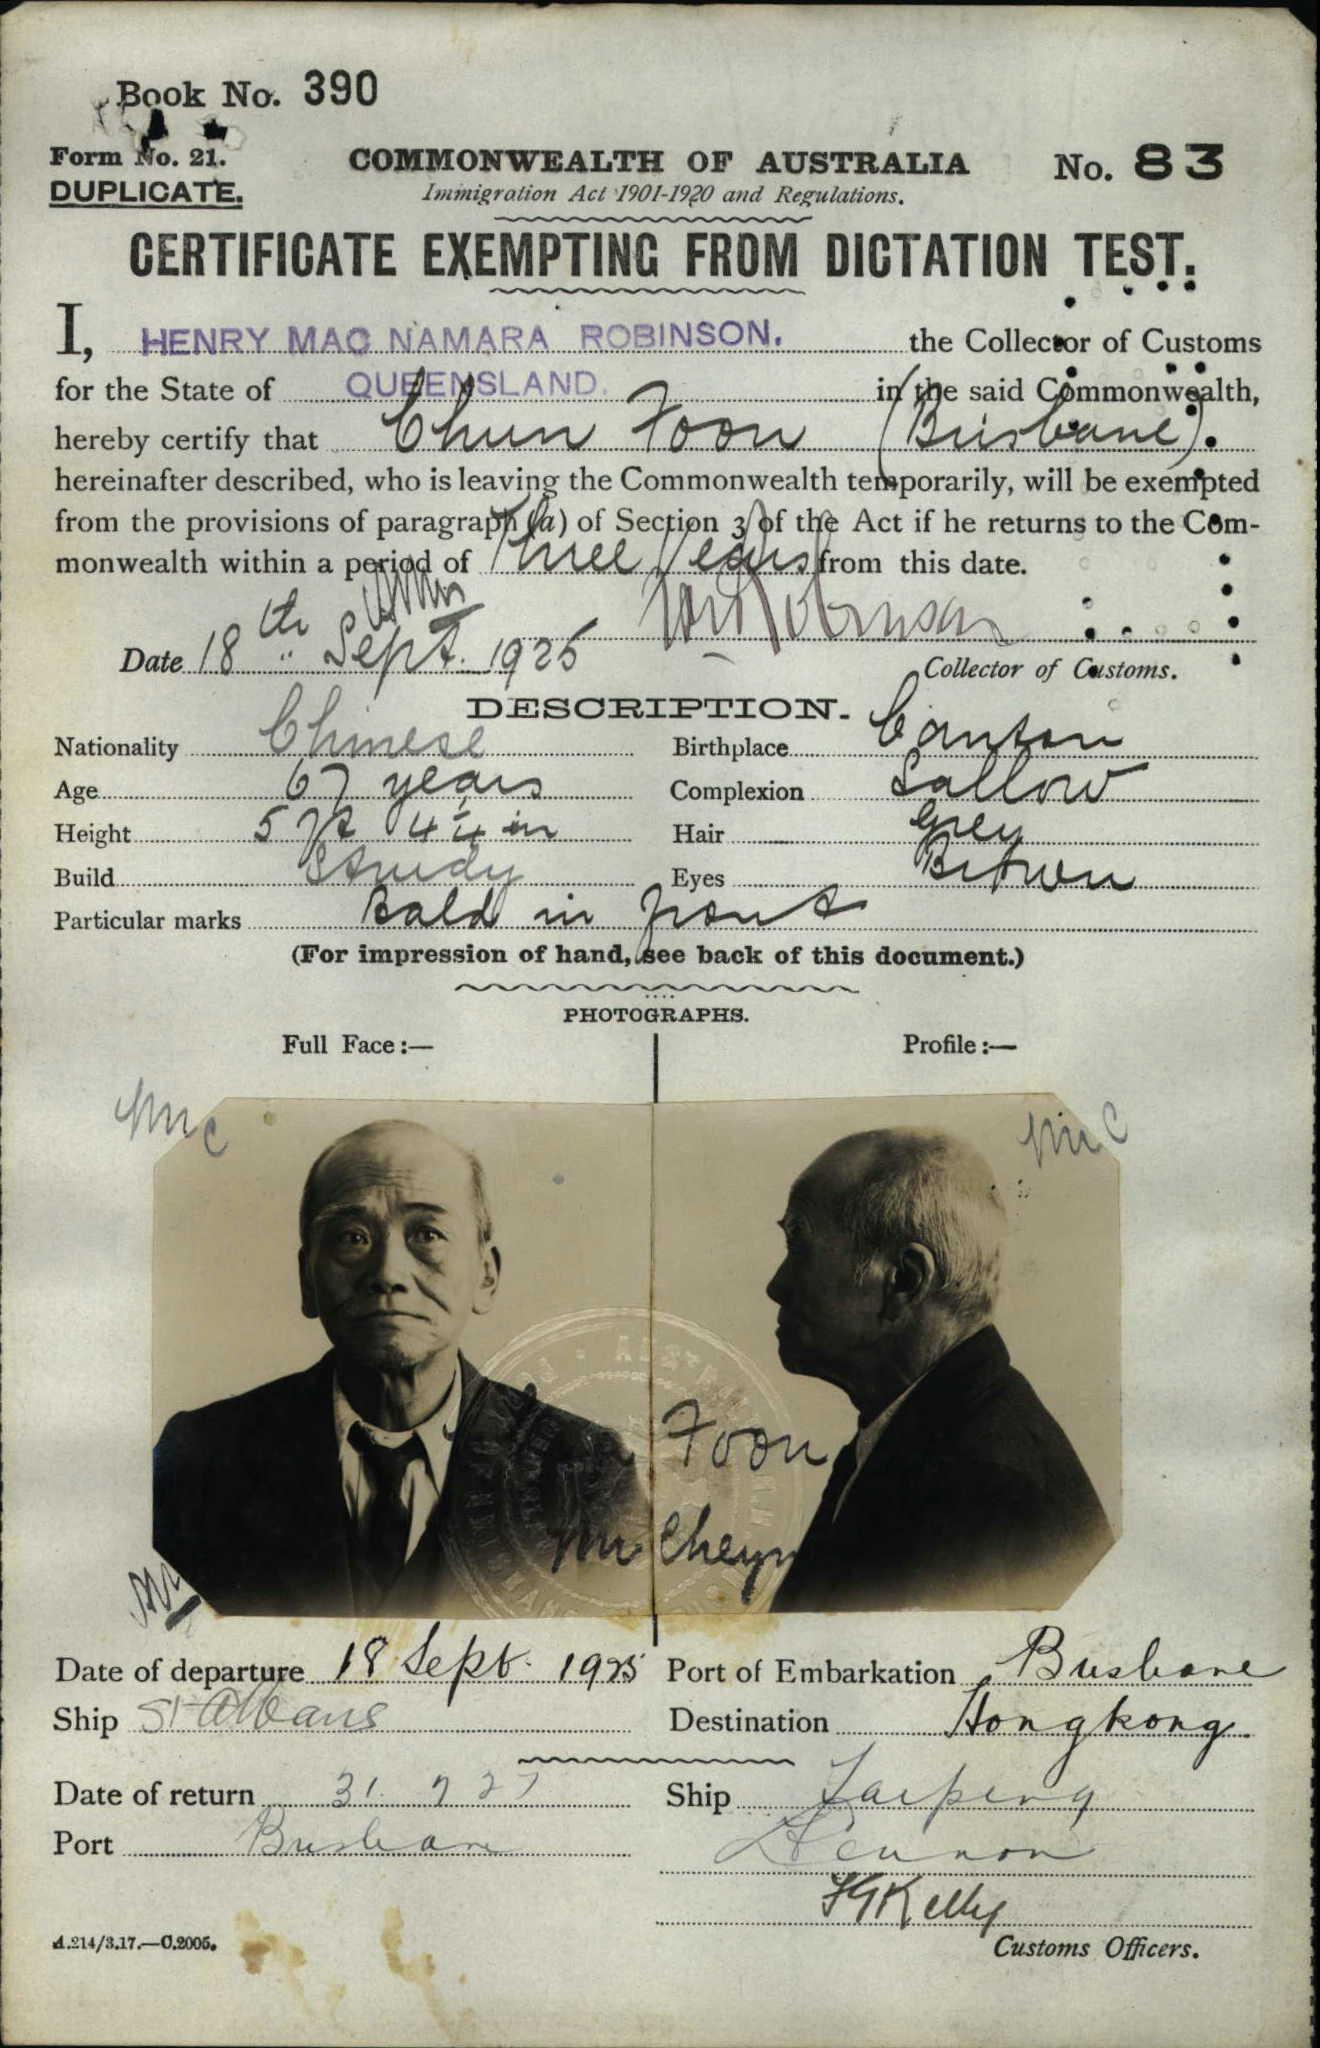 Book No. 390
Form No. 21.
DUPLICATE.
COMMONWEALTH OF AUSTRALIA
No. 83
Immigration Act 1901-1920 and Regulations.
CERTIFICATE EXEMPTING FROM DICTATION TEST.
I, HENRY MAC NAMARA ROBINSON. the Collector of Customs
for the State of QUEENSLAND. in the said Commonwealth,
hereby certify that Chun Foon (Brisbane).
hereinafter described, who is leaving the Commonwealth temporarily, will be exempted
from the provisions of paragraph (a) of Section 3 of the Act if he returns to the Com-
monwealth within a period of Three Years from this date.
Date 18th Sept. 1925
Collector of Customs.
DESCRIPTION.
Nationality Chinese Birthplace Canton
Age 67 years Complexion Sallow
Height 5 ft 4 1/4 in Hair Grey
Build Sturdy Eyes Brown
Particular marks Bald in front
(For impression of hand, see back of this document.)
PHOTOGRAPHS.
Full Face:— Profile:—
Foon
Date of departure 18 Sept. 1925 Port of Embarkation Brisbane
Ship St Albans Destination Hongkong.
Date of return 31 7 27 Ship Taiping
Port Brisbane
Kelly
A.214/3.17.—C.2005.
Customs Officers.